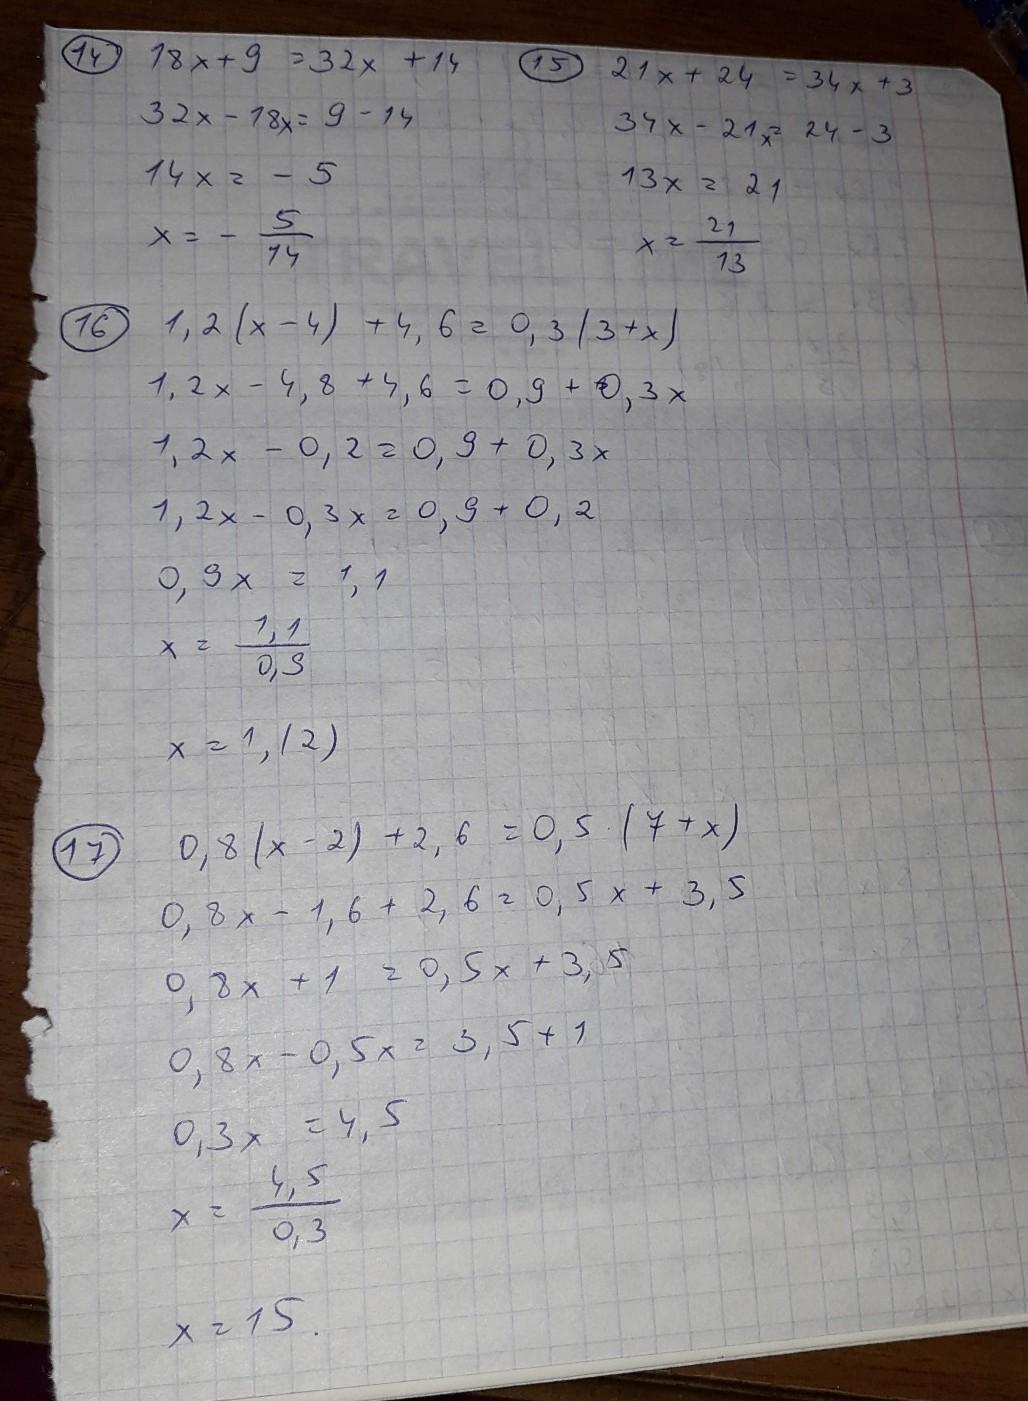 14 18x+9 = 32x + 14
32x - 18x = 9 - 14
14x = - 5
x = - 5/14
15 21x + 24 = 34x + 3
34x - 21x = 24 - 3
13x = 21
x = 21/13
16 1,2(x - 4) + 4,6 = 0,3(3+x)
1,2x - 4,8 + 4,6 = 0,9 + 0,3x
1,2x - 0,2 = 0,9 + 0,3x
1,2x - 0,3x = 0,9 + 0,2
0,9x = 1,1
x = 1,1/0,9
x = 1,(2)
17 0,8(x - 2) + 2,6 = 0,5·(7+x)
0,8x - 1,6 + 2,6 = 0,5x + 3,5
0,8x + 1 = 0,5x + 3,5
0,8x - 0,5x = 3,5 + 1
0,3x = 4,5
x = 4,5/0,3
x = 15.